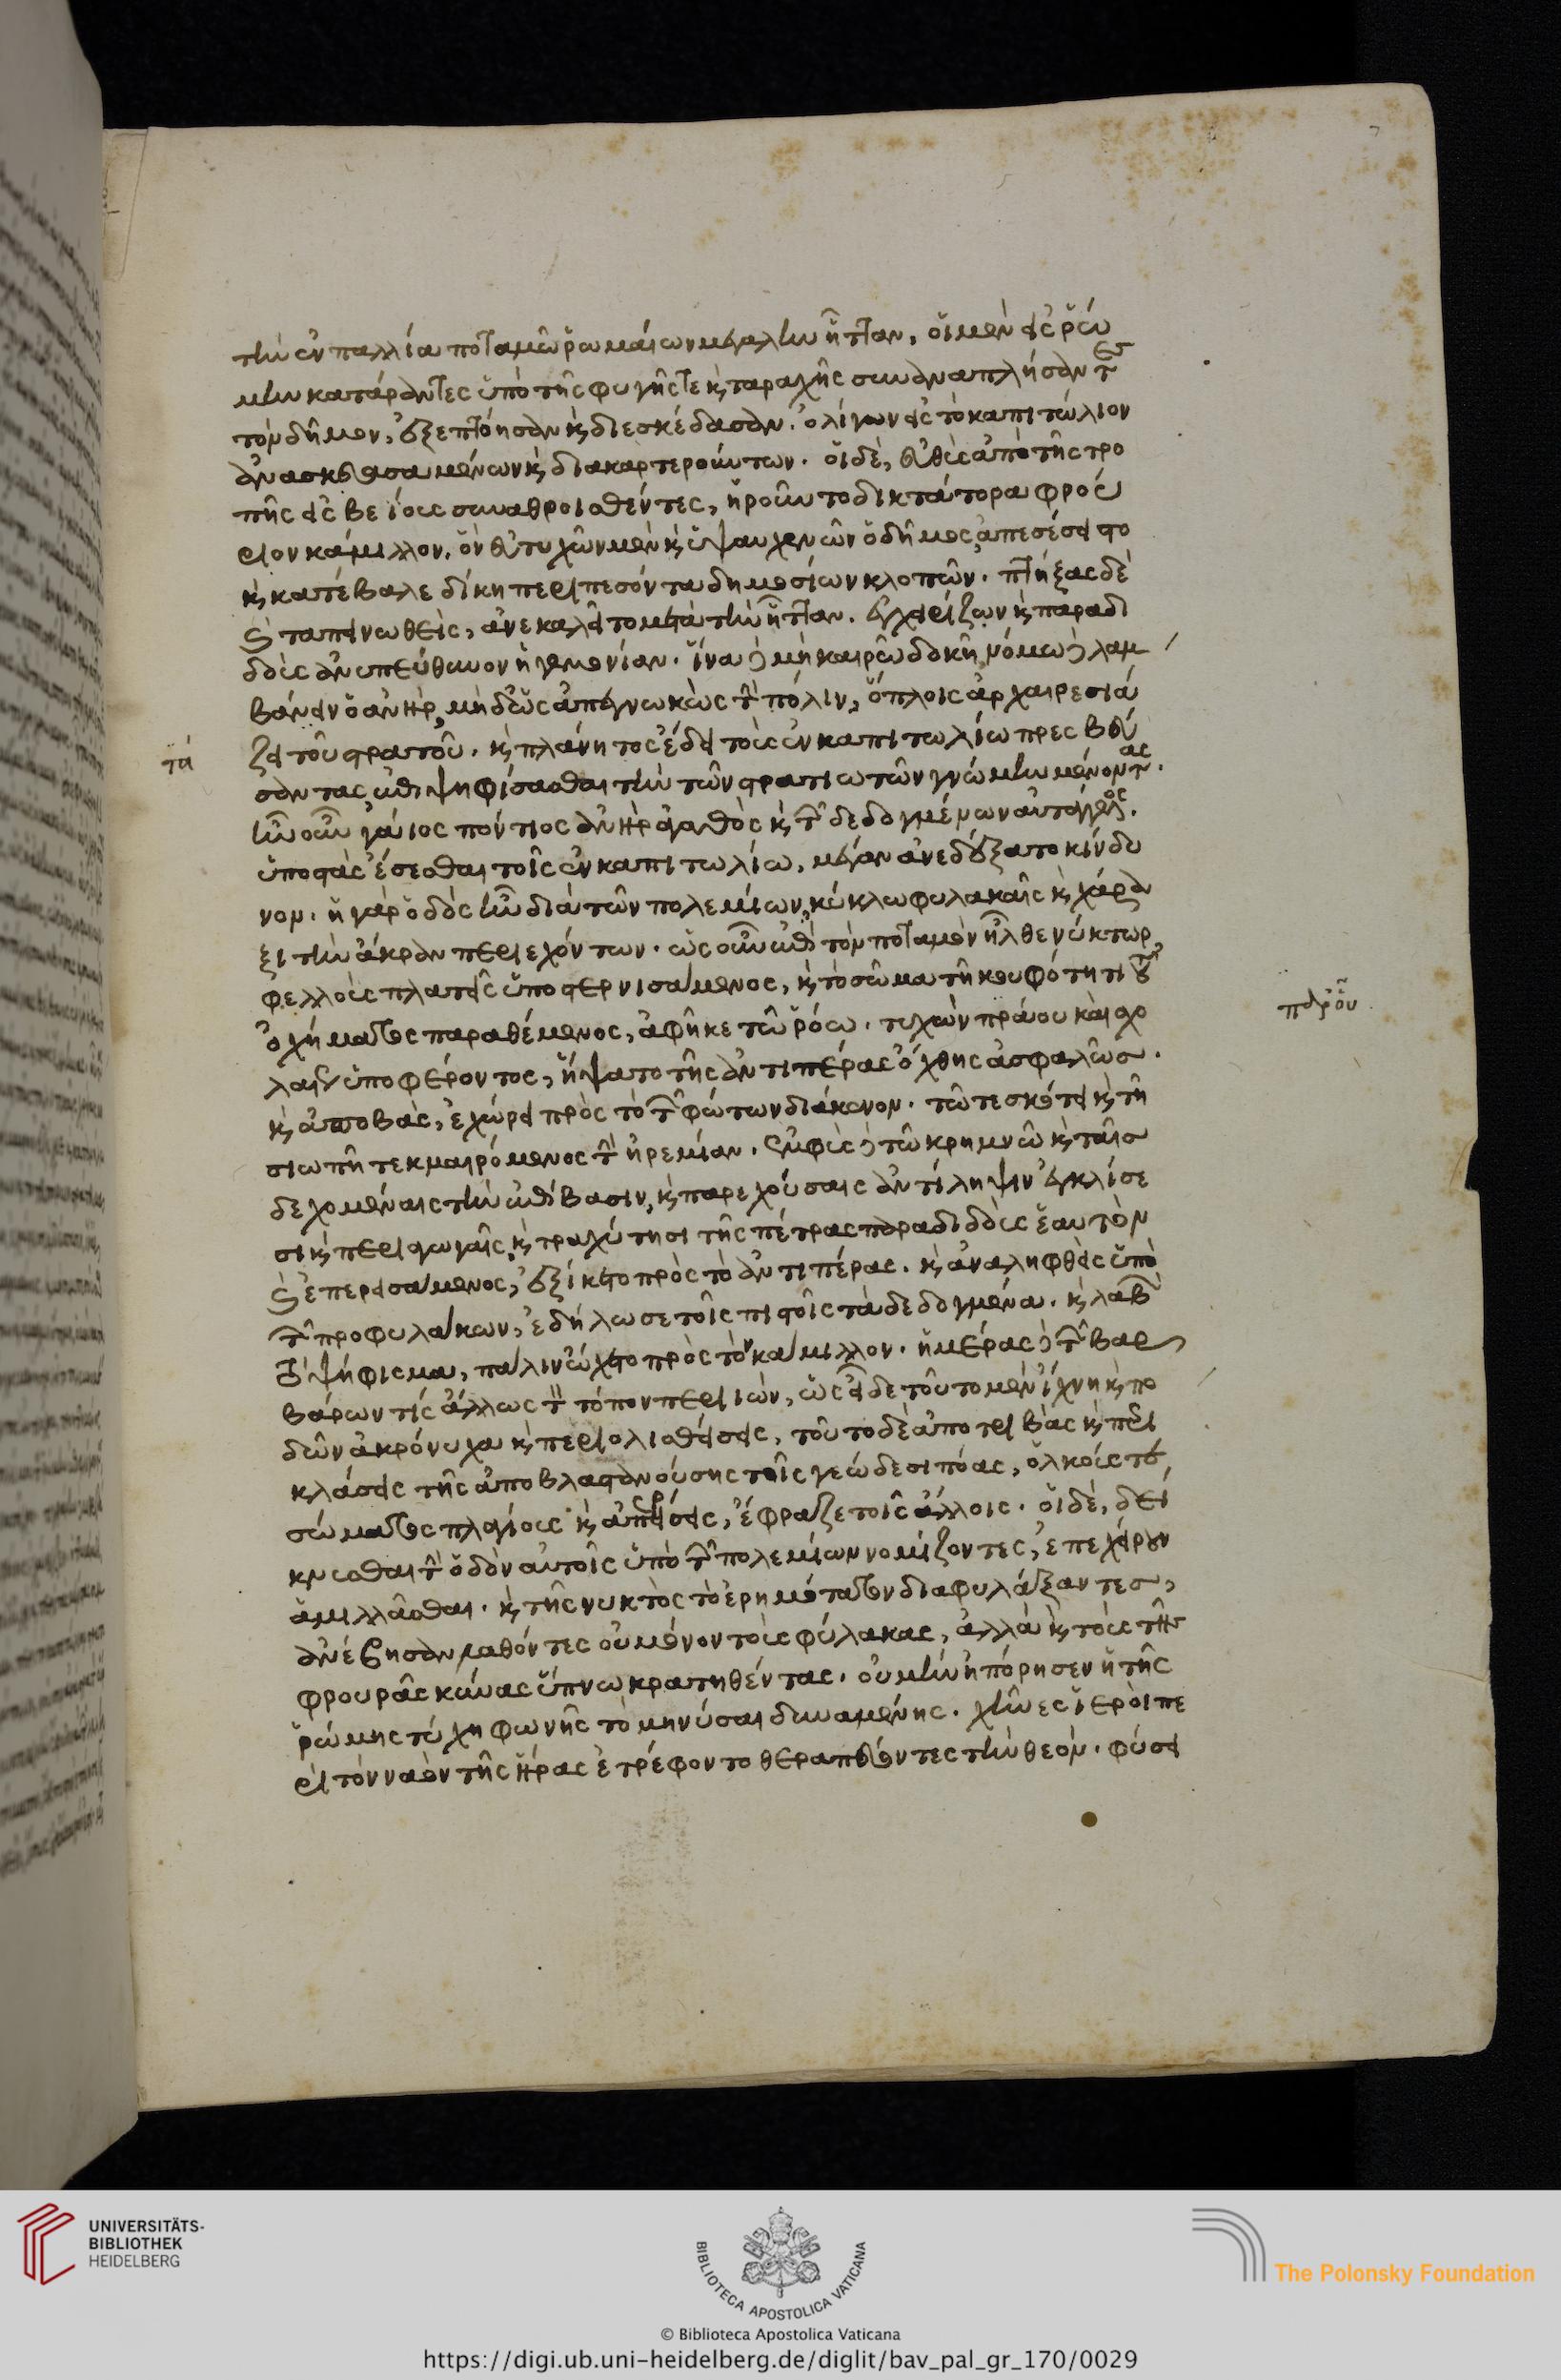 τὴν ἐν παλλία ποταμῶ ῥωμαίων μεγάλην ἧτταν, οἱ μὲν εἰς ῥώ
μην κατάραντες ὑπὸ τῆς φυγῆς τε καὶ ταραχῆς συναναπλήσαντες
τὸν δῆμον, ἐξεπτόησαν καὶ διεσκέδασαν. ὀλίγων εἰς τὸ καπιτώλιον
ἀνασκευασαμένων καὶ διακαρτερούντων. οἱ δὲ, εὐθὺς ἀπὸ τῆς τρο
πῆς εἰς βείους συναθροισθέντες, ἡροῦντο δικτάτορα φρού
ριον κάμιλλον, ὃν εὐτυχῶν μὲν καὶ ὑψαυχενῶν ὁ δῆμος, ἀπεσείσατο
καὶ κατέβαλε δίκη περιπεσόντα δημοσίων κλοπῶν. πτήξας δὲ
καὶ ταπεινωθεὶς, ἀνεκαλεῖτο μετὰ τὴν ἧτταν. ἐγχειρίζων καὶ παραδι
δοὺς ἀνυπεύθυνον ἡγεμονίαν. ἵνα δὲ μὴ καιρῶ δοκῆ, νόμω δὲ λαμ
βάνειν ὁ ἀνὴρ, μὴ δ' ὡς ἀπεγνωκὼς τὴν πόλιν, ὅπλοις ἀρχαιρεσιά
ζει τοῦ στρατοῦ. καὶ πλάνητος ἔδει τοὺς ἐν καπιτωλίω πρεσβεύ
τά
σαντας, ἐπιψηφίσασθαι τὴν τῶν στρατιωτῶν γνώμην μένοντας.
ἦν οὖν γάιος πόντιος ἀνὴρ ἀγαθὸς καὶ τῶν δεδογμένων αὐτάγγελος.
ὑποστὰς ἔσεσθαι τοῖς ἐν καπιτωλίω, μέγαν ἀνεδέξατο κίνδυ
νον. ἡ γὰρ ὁδὸς ἦν διὰ τῶν πολεμίων, κύκλω φυλακαῖς καὶ χάρα
ξι τὴν ἄκραν περιεχόντων. ὡς οὖν ἐπὶ τὸν ποταμὸν ἦλθε νύκτωρ,
φελλοὺς πλατεῖς ὑποστερνισάμενος, καὶ τὸ σῶμα τῆ κουφότητι τοῦ
ὀχήματος παραθέμενος, ἀφῆκε τῶ ῥόω. τυχὼν πράου καὶ σχο
πράου
λαίου ὑποφέροντος, ἥψατο τῆς ἀντιπέρας ὄχθης ἀσφαλῶς.
καὶ ἀποβὰς, ἐχώρει πρὸς τὸ τῶν φώτων διάκενον. τῶ τε σκότει καὶ τῆ
σιωπῆ τεκμαιρόμενος τὴν ἠρεμίαν. ἐμφὺς δὲ τῶ κρημνῶ καὶ ταῖς
δεχομέναις τὴν ἐπίβασιν, καὶ παρεχούσαις ἀντίληψιν ἐγκλίσε
σι καὶ περιαγωγαῖς, καὶ τραχύτησι τῆς πέτρας παραδιδοὺς ἑαυτὸν
καὶ ἐπερεισάμενος, ἐξίκετο πρὸς τὸ ἀντιπέρας. καὶ ἀναληφθεὶς ὑπὸ
τῶν προφυλάκων, ἐδήλωσε τοῖς πιστοῖς τὰ δεδογμένα. καὶ λαβὼν
τὸ ψήφισμα, πάλιν ὤχετο πρὸς τὸν κάμιλλον. ἡμέρας δὲ τῶν βαρ
βάρων τίς ἄλλως τὸν τόπον περιιὼν, ὡς εἶδε τοῦτο μὲν ἴχνη καὶ πο
δῶν ἀκρόνυχα καὶ περιολισθήσεις, τοῦτο δὲ ἀποτριβὰς καὶ περι
κλάσεις τῆς ἀποβλαστανούσης τοῖς γεώδεσι πόας, ὁλκούς τε
σώματος πλαγίους καὶ ἀπερείσεις, ἔφραζε τοῖς ἄλλοις. οἱ δὲ, δεί
κνυσθαι τὴν ὁδὸν αὐτοῖς ὑπὸ τῶν πολεμίων νομίζοντες, ἐπεχείρουν
ἁμιλλᾶσθαι. καὶ τῆς νυκτὸς τὸ ἐρημότατον διαφυλάξαντες,
ἀνέβησαν λαθόντες οὐ μόνον τοὺς φύλακας, ἀλλὰ καὶ τοὺς τῆς
φρουρᾶς κύνας ὕπνω κρατηθέντας. οὐ μὴν ἠπόρησεν ἡ τῆς
ῥώμης τύχη φωνῆς τὸ μηνύσαι δυναμένης. χῆνες ἱεροὶ πε
ρὶ τὸν ναὸν τῆς ἥρας ἐτρέφοντο θεραπεύοντες τὴν θεόν. φύσει
UNIVERSITÄTS-
BIBLIOTHEK
HEIDELBERG
BIBLIOTECA APOSTOLICA VATICANA
The Polonsky Foundation
© Biblioteca Apostolica Vaticana
https://digi.ub.uni-heidelberg.de/diglit/bav_pal_gr_170/0029